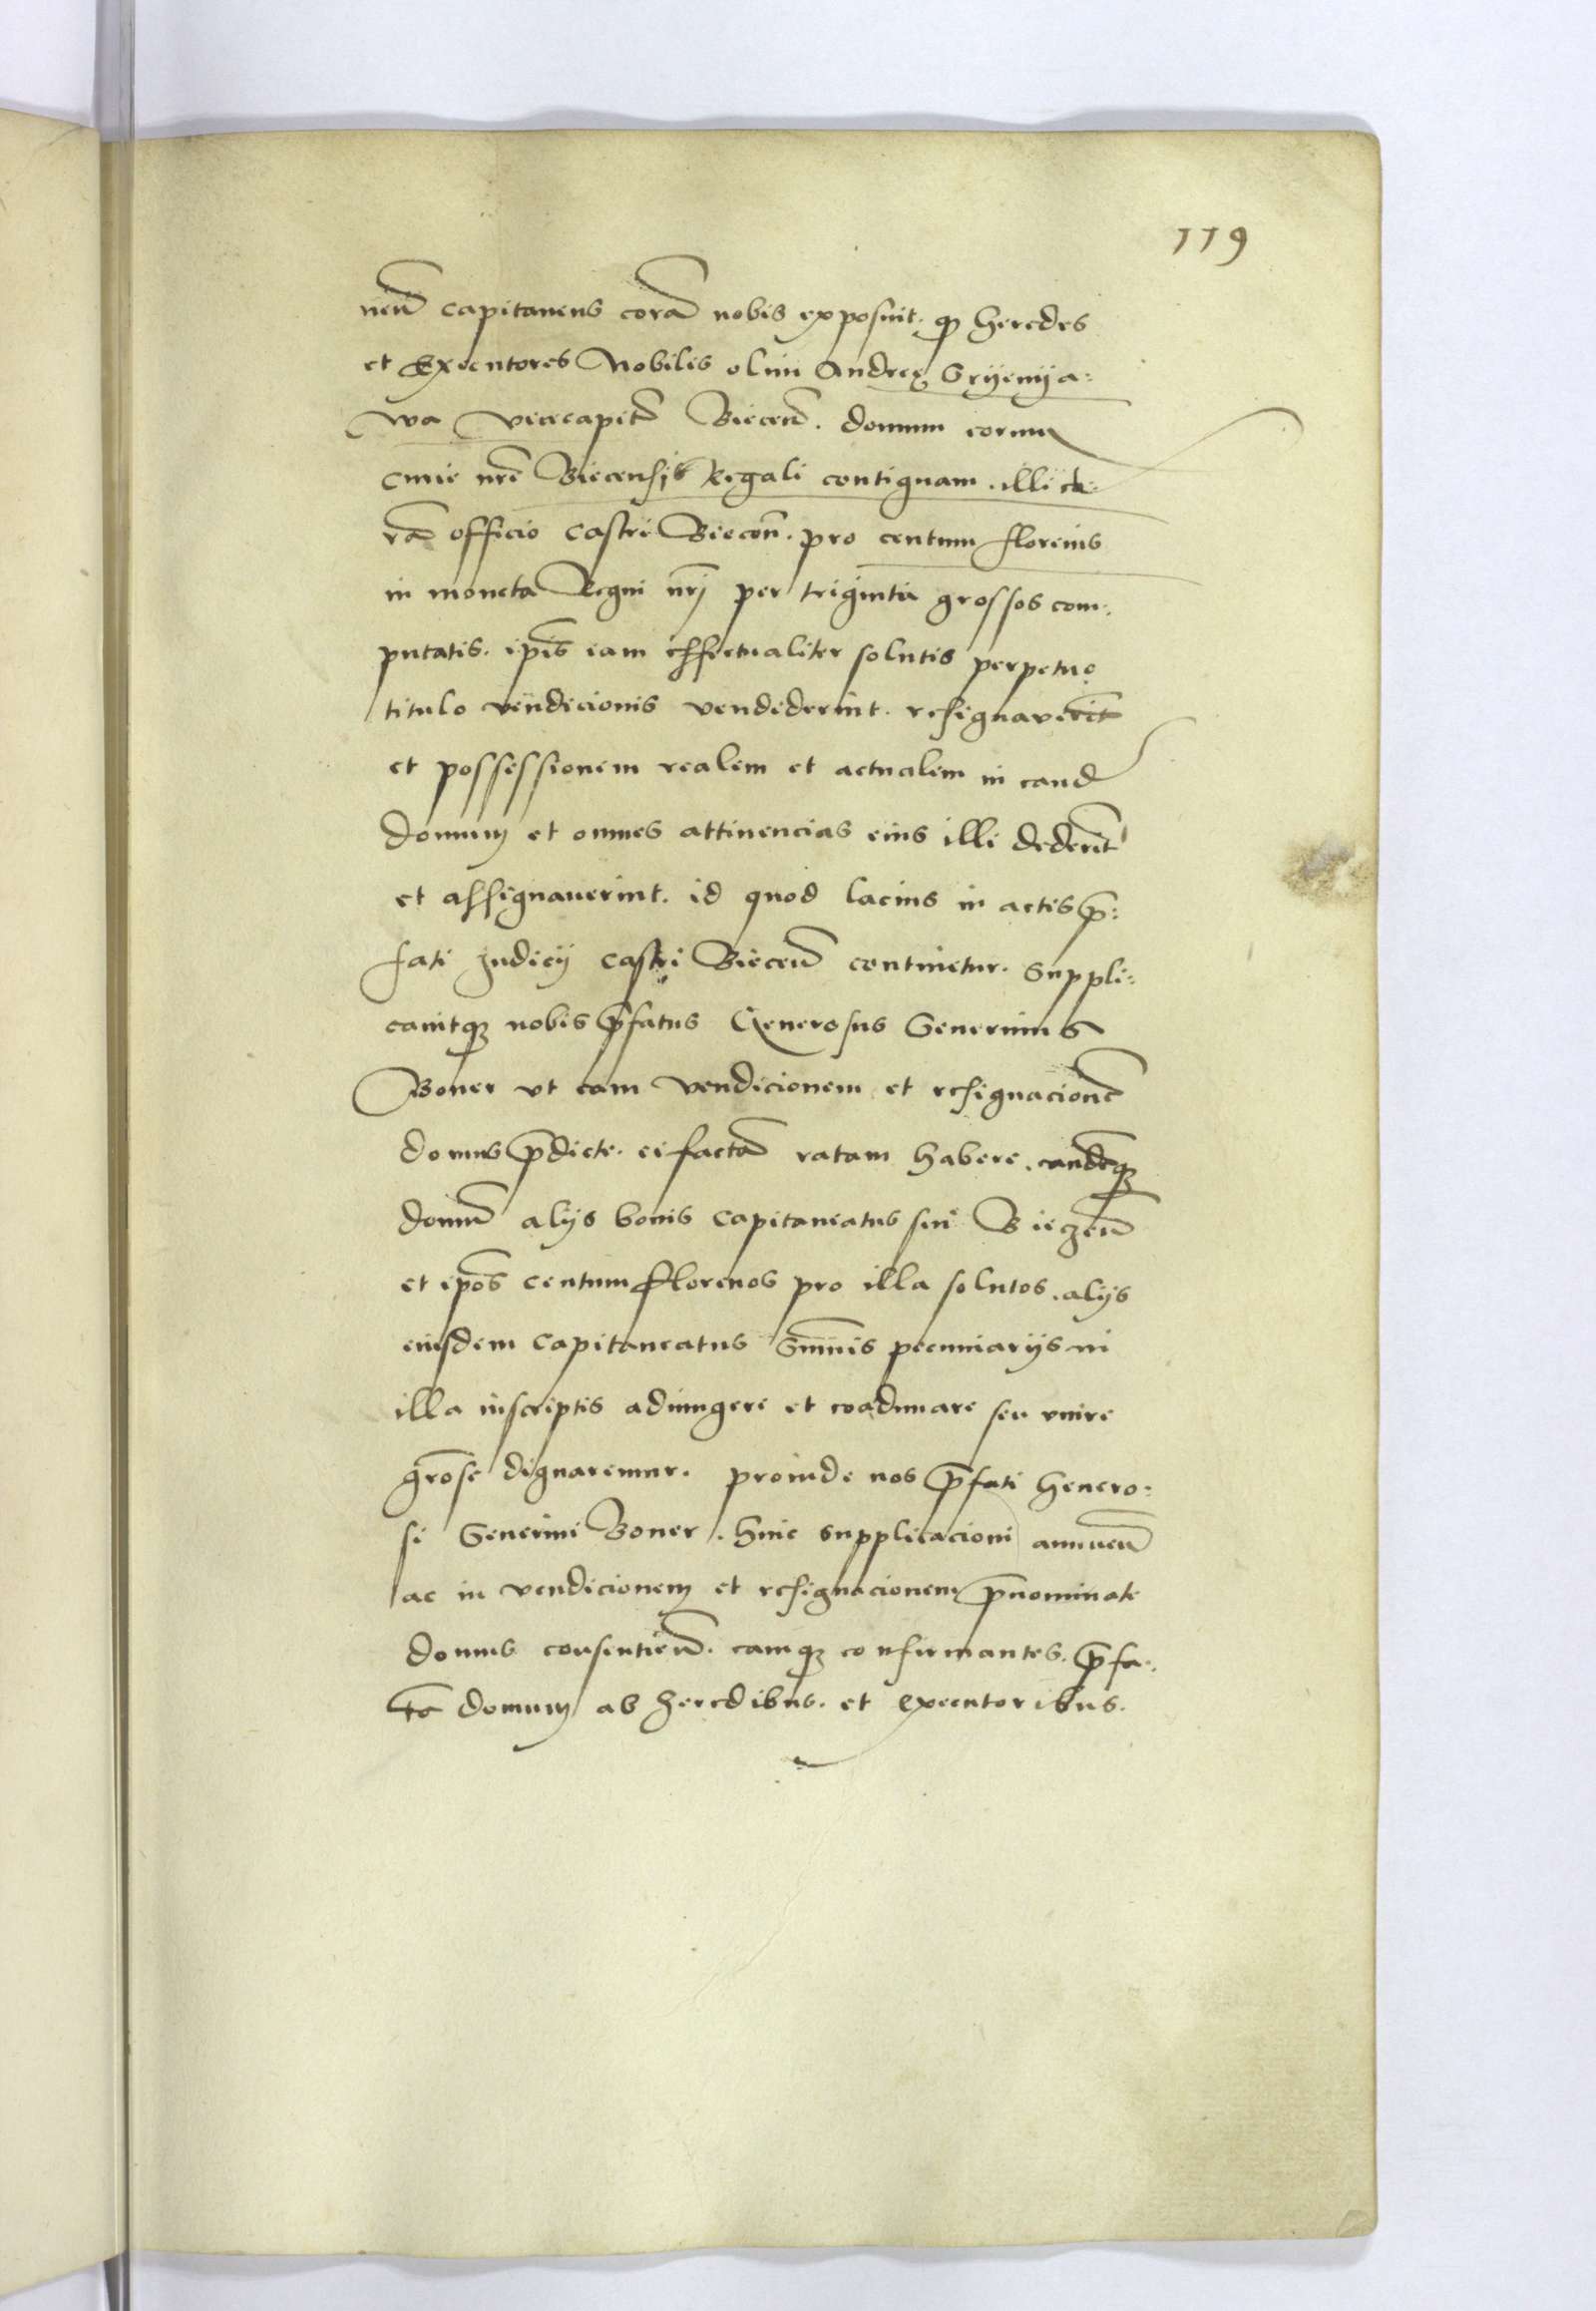 119
nen̄ capitaneus corā nobis exposuit. ꝙ heredes
et Executores Nobilis olim Andreę Sryemya:
wa vicecapit̄ Biecen̄. domum eorum
curie nrē Biecensis Regali contiguam. illi co:
rā officio castri Biecen̄. pro centum florenis
in moneta Regni nrj̄ per triginta grossos com:
putatis. ip̄is iam effectualiter solutis perpetuo
titulo vendicionis vendiderint. resignaverīt
et possessionem realem et actualem in eand̄
domum et omnes attinencias eius illi dederīt
et assignauerint. id quod lacius in actis p̄:
fati Judicij castri Biecen̄ continetur. Suppli:
cauitqꝫ nobis p̄fatus Generosus Severinus
Boner vt eam vendicionem et resignacionē
domus p̄dicte. ei factā ratam habere. eandēqꝫ
domū alijs bonis capitaneatus sui Bieczen̄
et ip̄os centum florenos pro illa solutos. alijs
eiusdem capitaneatus Sūmis pecuniarijs in
illa inscriptis adiungere et coadunare seu vnire
grōse dignaremur. proinde nos p̄fati Genero:
si Severini Boner. huic supplicacioni annuen̄
ac in vendicionem et resignacionem p̄nominate
domus consentien̄. eamqꝫ confirmantes. p̄fa:
tā domum ab heredibus. et executoribus.